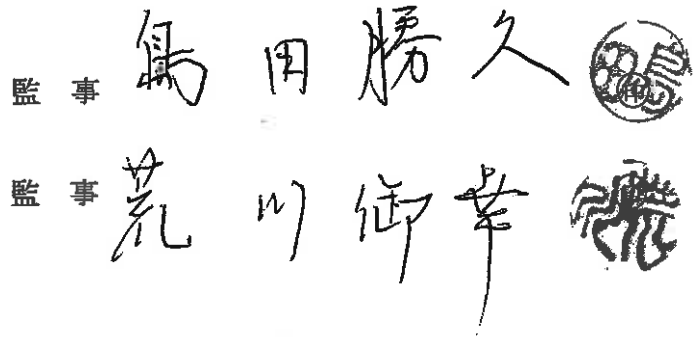 監事 島田勝久
監事 荒川御幸